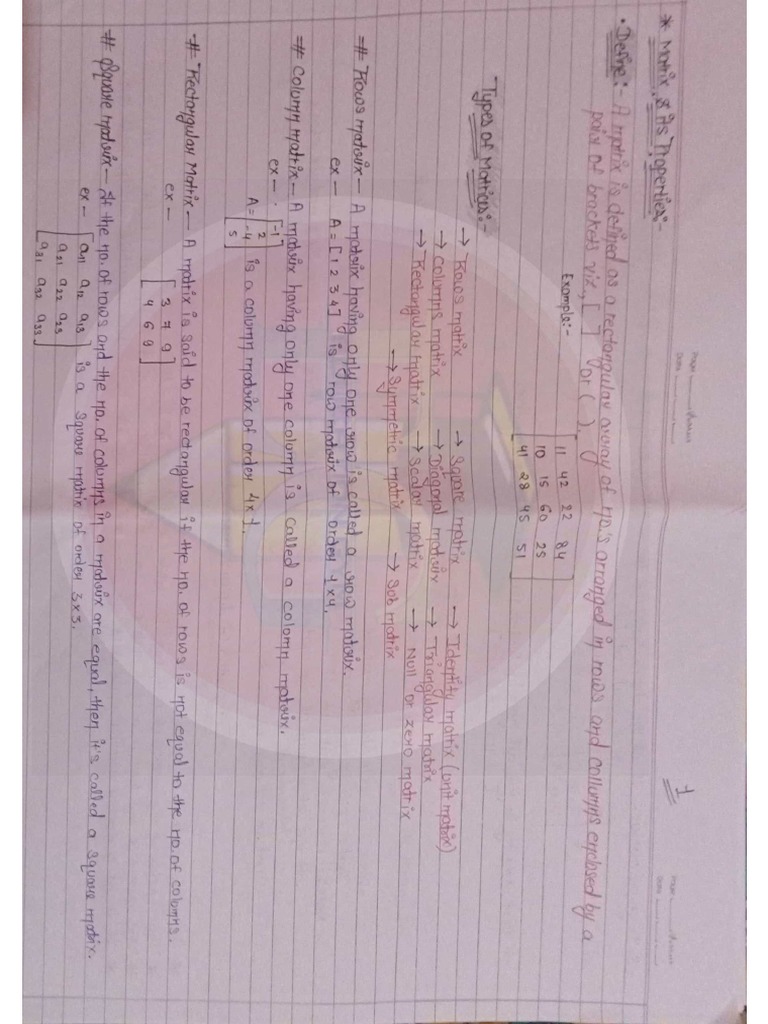 1
* Matrix & Its Properties:-
• Define:- A matrix is defined as a rectangular array of no.'s arranged in rows and collumns enclosed by a
pair of brackets vix, [ ] or ( ).
Example:-
[ 11 42 22 84
10 15 60 25
41 28 45 51 ]
Types of Matrices:-
→ Rows matrix → Square matrix → Identity matrix (unit matrix)
→ Columns matrix → Diagonal matrix → Triangular matrix
→ Rectangular matrix → Scalar matrix → Null or zero matrix
→ Symmetric matrix → Sob matrix
# Rows matrix - A matrix having only one row is called a row matrix.
ex - A = [1 2 3 4] is row matrix of order 4×4.
# Column matrix - A matrix having only one column is called a column matrix.
ex - A = [ -1
2
-4
5 ] is a column matrix of order 4×1.
# Rectangular Matrix - A matrix is said to be rectangular if the no. of rows is not equal to the no. of columns.
ex - [ 3 7 9
4 6 9 ]
# Square matrix - If the no. of rows and the no. of columns in a matrix are equal, then it's called a square matrix.
ex - [ a11 a12 a13
a21 a22 a23
a31 a32 a33 ] is a square matrix of order 3×3.